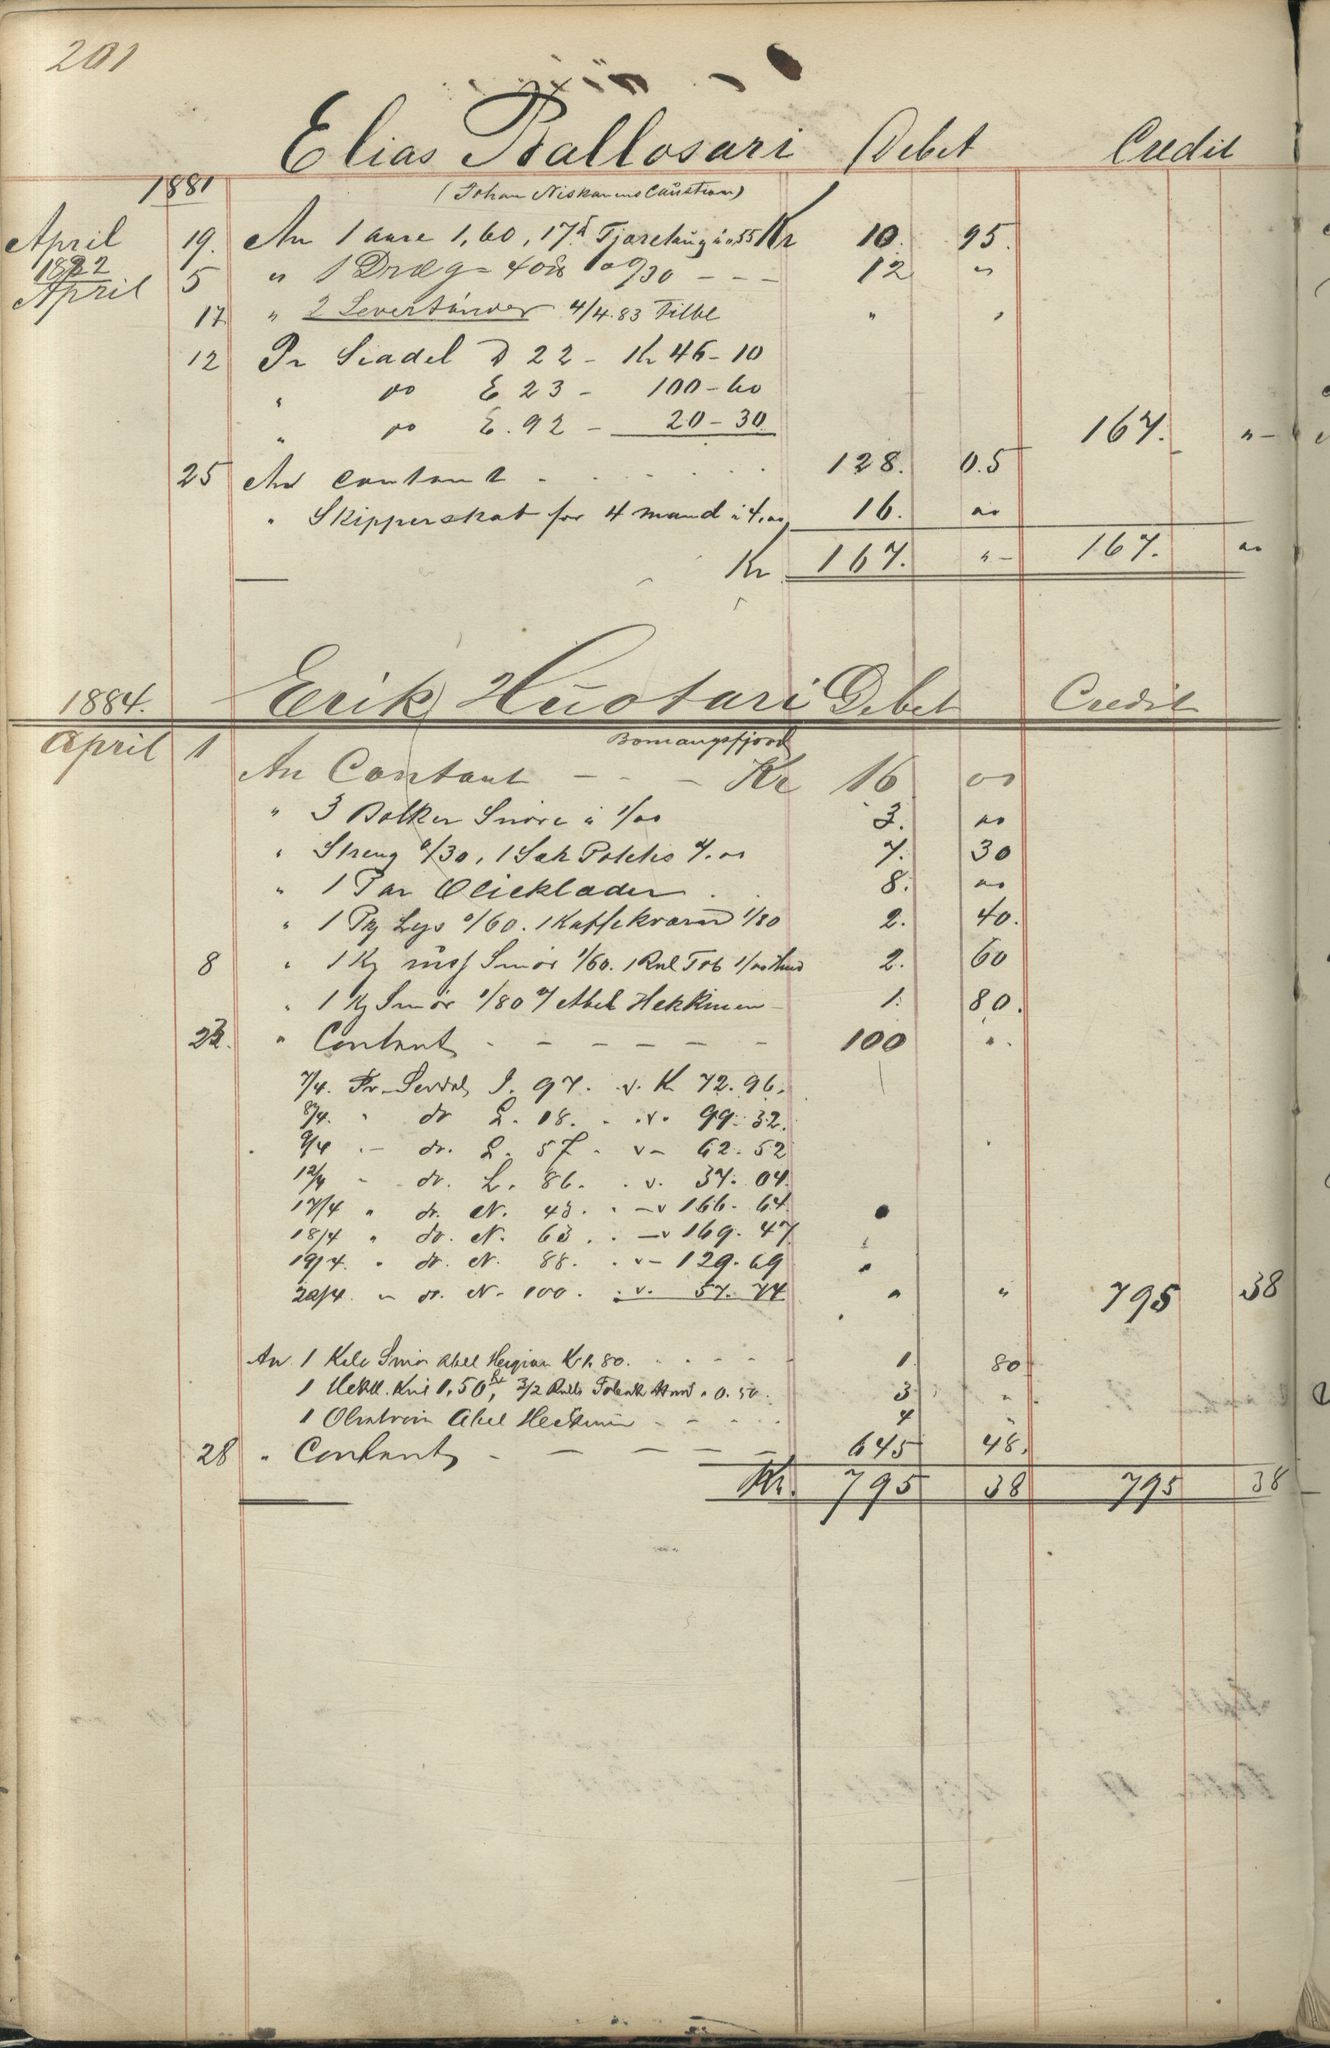 201
Elias Pallosari Debet Credit
1881 (Johan Niskanens Caution)
April 19. An 1 aare 1,60, 17 Tjæretaug à " 55 Kr 10. 95.
1882
April 5 " 1 Dræg 40 a 0/30 - - - 12 "
17 " 2 Levertünder 4/4.83 Tilbl " "
12 Pr Seadel D 22 - Kr 46-10
" do E 23 - 100-60
" do E. 92 - 20-30 167. "-
25 An contant - . . . . 128. 05
" Skipperskat for 4 mand à 4,00 16. 00
Kr 167. "- 167. 00
1884. Erik Huotari Debet Credit
Bomangsfjord
April 1 An Contant - - - Kr 16 00
" 3 Bolker Snöre à 1/00 3. 00
" Streng 0/30, 1 Sæk Poteter 7.00 7. 30
" 1 Par Olieklæder . . 8. 00
" 1 Pk Lys 0/60. 1 Kaffekværn 1/80 2. 40.
8 " 1 Kg russ Smör 1/60. 1 Rul Tob 1/00 2. 60
" 1 Kg Smör 1/80 Abel Hekkinen - 1. 80.
22. " Contant - - - - - - 100 "
7/4. Pr. Seddel I. 97. v. K 72. 96.
8/4. " do L. 18. . v. 99. 32.
9/4 " do. L. 57. v- 62. 52
12/4 " do. L. 86. . v. 37. 04.
17/4 " do. N. 43. . -v 166. 64.
18/4 " do. N. 63. . -v 169. 47
19/4. " do. N. 88. . v- 129. 69
20/4. " do. N. 100. . v. 57. 74 " " 795 38
An 1 Kilo Smör Abel Kr 1. 80. . - - - 1. 80
1 1,50, 3/2 Rulle Tobak " 0.50. 3 "
1 Abel Heckinen - - - . 4 "
28 " Contant - - - - - 645 48.
Kr. 795 38 795 38